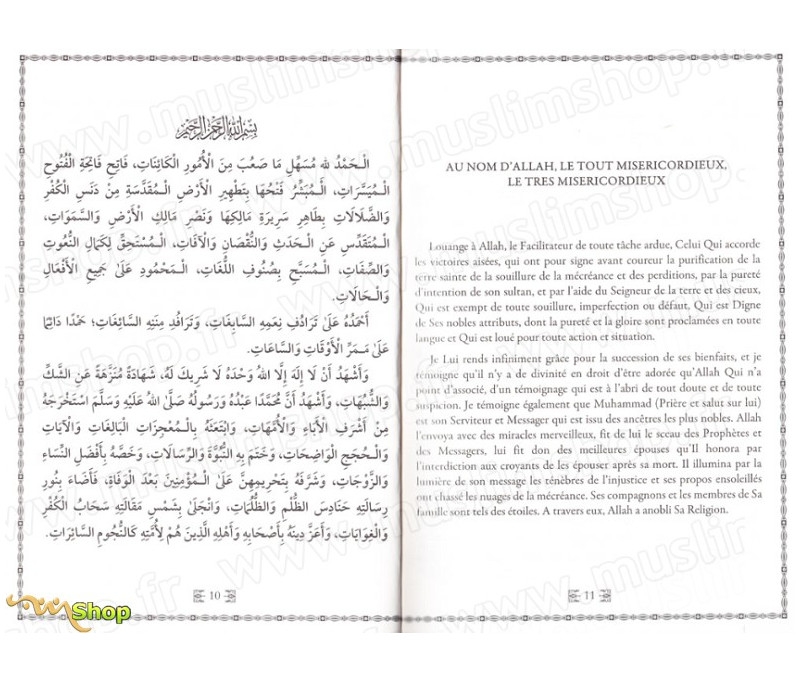 بِسْمِ اللَّهِ الرَّحْمَنِ الرَّحِيمِ
الْـحَمْدُ لله مُسَهِّلِ مَا صَعُبَ مِنَ الْأُمُورِ الْكَائِنَاتِ، فَاتِحِ فَاتِحَةِ الْفُتُوحِ
الْـمُيَسَّرَاتِ، الْـمُبَشَّرِ فَتْحُهَا بِتَطْهِيرِ الْأَرْضِ الْـمُقَدَّسَةِ مِنْ دَنَسِ الْكُفْرِ
وَالضَّلَالَاتِ بِطَاهِرِ سَرِيرَةِ مَالِكِهَا وَنَصْرِ مَالِكِ الْأَرْضِ وَالسَّمَوَاتِ،
الْـمُتَقَدِّسِ عَنِ الْـحَدَثِ وَالنُّقْصَانِ وَالْآفَاتِ، الْـمُسْتَحِقِّ لِكَمَالِ النُّعُوتِ
وَالصِّفَاتِ، الْـمُسَبَّحِ بِصُنُوفِ اللُّغَاتِ، الْـمَحْمُودِ عَلَىٰ جَمِيعِ الْأَفْعَالِ
وَالْـحَالَاتِ.
أَحْمَدُهُ عَلَىٰ تَرَادُفِ نِعَمِهِ السَّابِغَاتِ، وَتَرَافُدِ مِنَنِهِ السَّائِغَاتِ؛ حَمْدًا دَائِمًا
عَلَىٰ مَـمَرِّ الْأَوْقَاتِ وَالسَّاعَاتِ.
وَأَشْهَدُ أَنْ لَا إِلَهَ إِلَّا اللهُ وَحْدَهُ لَا شَرِيكَ لَهُ، شَهَادَةً مُنَزَّهَةً عَنِ الشَّكِّ
وَالشُّبُهَاتِ، وَأَشْهَدُ أَنَّ مُحَمَّدًا عَبْدُهُ وَرَسُولُهُ صَلَّى اللهُ عَلَيْهِ وَسَلَّمَ اسْتَخْرَجَهُ
مِنْ أَشْرَفِ الْآبَاءِ وَالْأُمَّهَاتِ، وَابْتَعَثَهُ بِالْـمُعْجِزَاتِ الْبَالِغَاتِ وَالْآيَاتِ
وَالْـحُجَجِ الْوَاضِحَاتِ، وَخَتَمَ بِهِ النُّبُوَّةَ وَالرِّسَالَاتِ، وَخَصَّهُ بِأَفْضَلِ النِّسَاءِ
وَالزَّوْجَاتِ، وَشَرَّفَهُ بِتَحْرِيمِهِنَّ عَلَىٰ الْـمُؤْمِنِينَ بَعْدَ الْوَفَاةِ، فَأَضَاءَ بِنُورِ
رِسَالَتِهِ حَنَادِسَ الظُّلَمِ وَالظُّلُمَاتِ، وَانْجَلَىٰ بِشَمْسِ مَقَالَتِهِ سَحَابُ الْكُفْرِ
وَالْغِوَايَاتِ، وَأَعَزَّ دِينَهُ بِأَصْحَابِهِ وَأَهْلِهِ الَّذِينَ هُمْ لِأُمَّتِهِ كَالنُّجُومِ السَّائِرَاتِ.
10
AU NOM D'ALLAH, LE TOUT MISERICORDIEUX,
LE TRES MISERICORDIEUX
Louange à Allah, le Facilitateur de toute tâche ardue, Celui Qui accorde
les victoires aisées, qui ont pour signe avant coureur la purification de la
terre sainte de la souillure de la mécréance et des perditions, par la pureté
d'intention de son sultan, et par l'aide du Seigneur de la terre et des cieux,
Qui est exempt de toute souillure, imperfection ou défaut, Qui est Digne
de Ses nobles attributs, dont la pureté et la gloire sont proclamées en toute
langue et Qui est loué pour toute action et situation.
Je Lui rends infiniment grâce pour la succession de ses bienfaits, et je
témoigne qu'il n'y a de divinité en droit d'être adorée qu'Allah Qui n'a
point d'associé, d'un témoignage qui est à l'abri de tout doute et de toute
suspicion. Je témoigne également que Muhammad (Prière et salut sur lui)
est son Serviteur et Messager qui est issu des ancêtres les plus nobles. Allah
l'envoya avec des miracles merveilleux, fit de lui le sceau des Prophètes et
des Messagers, lui fit don des meilleures épouses qu'Il honora par
l'interdiction aux croyants de les épouser après sa mort. Il illumina par la
lumière de son message les ténèbres de l'injustice et ses propos ensoleillés
ont chassé les nuages de la mécréance. Ses compagnons et les membres de Sa
famille sont tels des étoiles. A travers eux, Allah a anobli Sa Religion.
11
Shop
www.muslimshop.fr